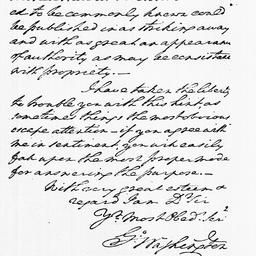 ed to be commonly known could
be published in as striking a way
and with as great an appearance
of authority as may be consistent
with propriety.—
I have taken the liberty
to trouble you with this hint as
sometimes things the most obvious
escape attention—if you agree with
me in sentiment, you will easily
fall upon the most proper mode
for answering the purpose.—
With very great esteem &
regard I am Dr Sir
Yr. Most Obed. Ser.
Go Washington